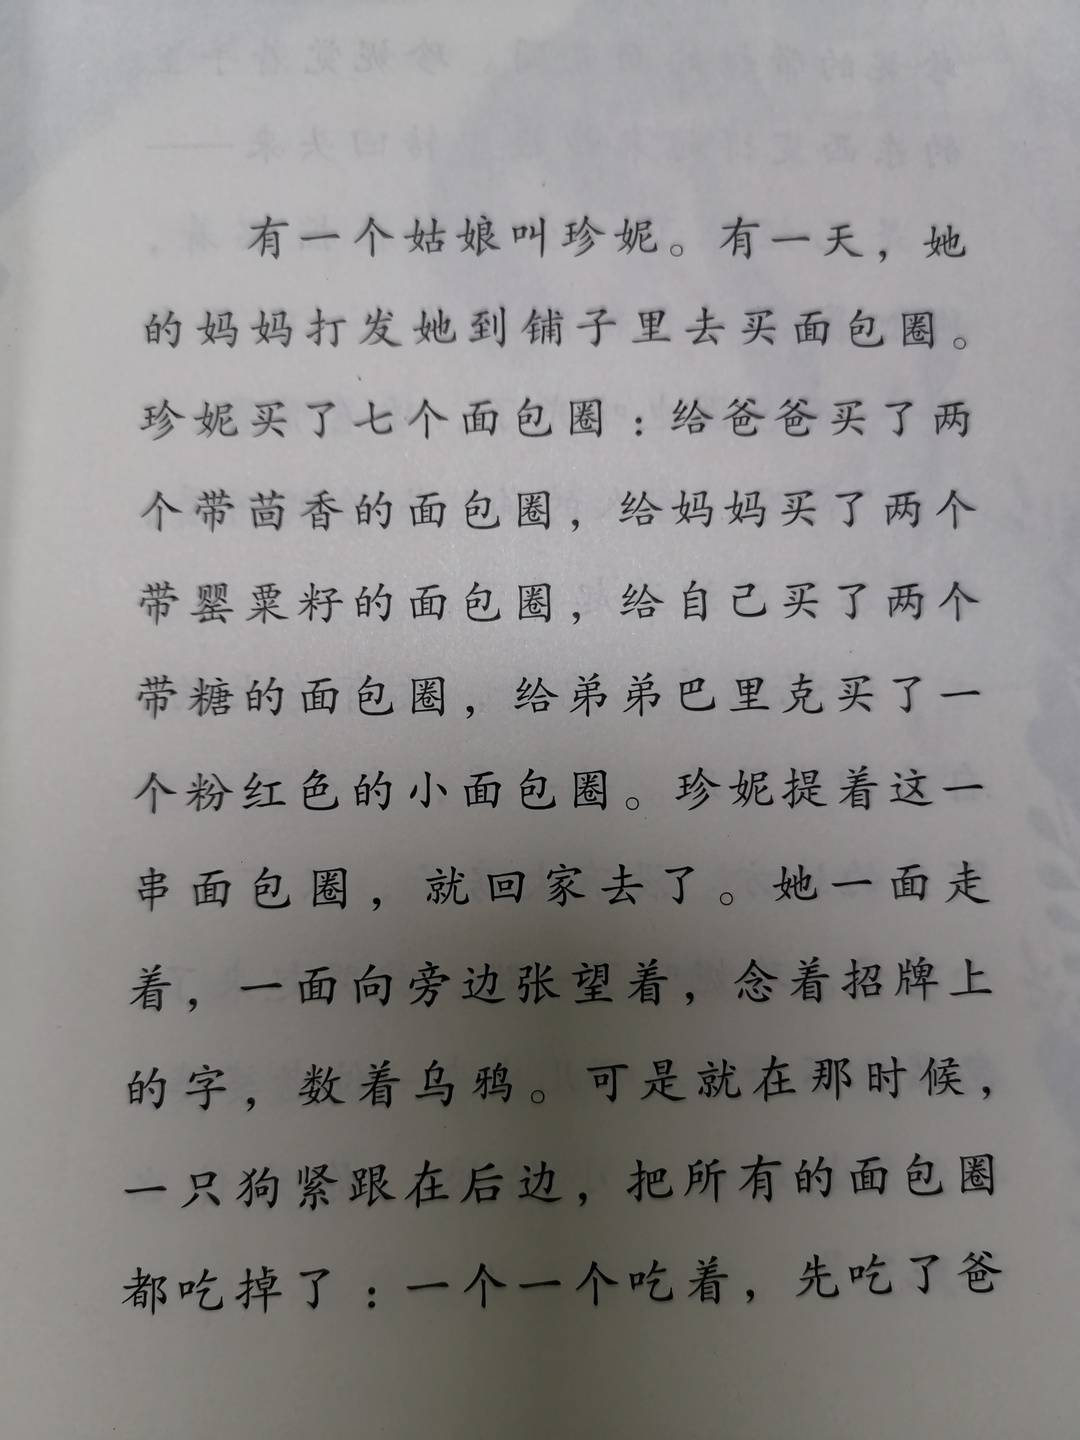 有一个姑娘叫珍妮。有一天，她
的妈妈打发她到铺子里去买面包圈。
珍妮买了七个面包圈：给爸爸买了两
个带茴香的面包圈，给妈妈买了两个
带罂粟籽的面包圈，给自己买了两个
带糖的面包圈，给弟弟巴里克买了一
个粉红色的小面包圈。珍妮提着这一
串面包圈，就回家去了。她一面走
着，一面向旁边张望着，念着招牌上
的字，数着乌鸦。可是就在那时候，
一只狗紧跟在后边，把所有的面包圈
都吃掉了：一个一个吃着，先吃了爸